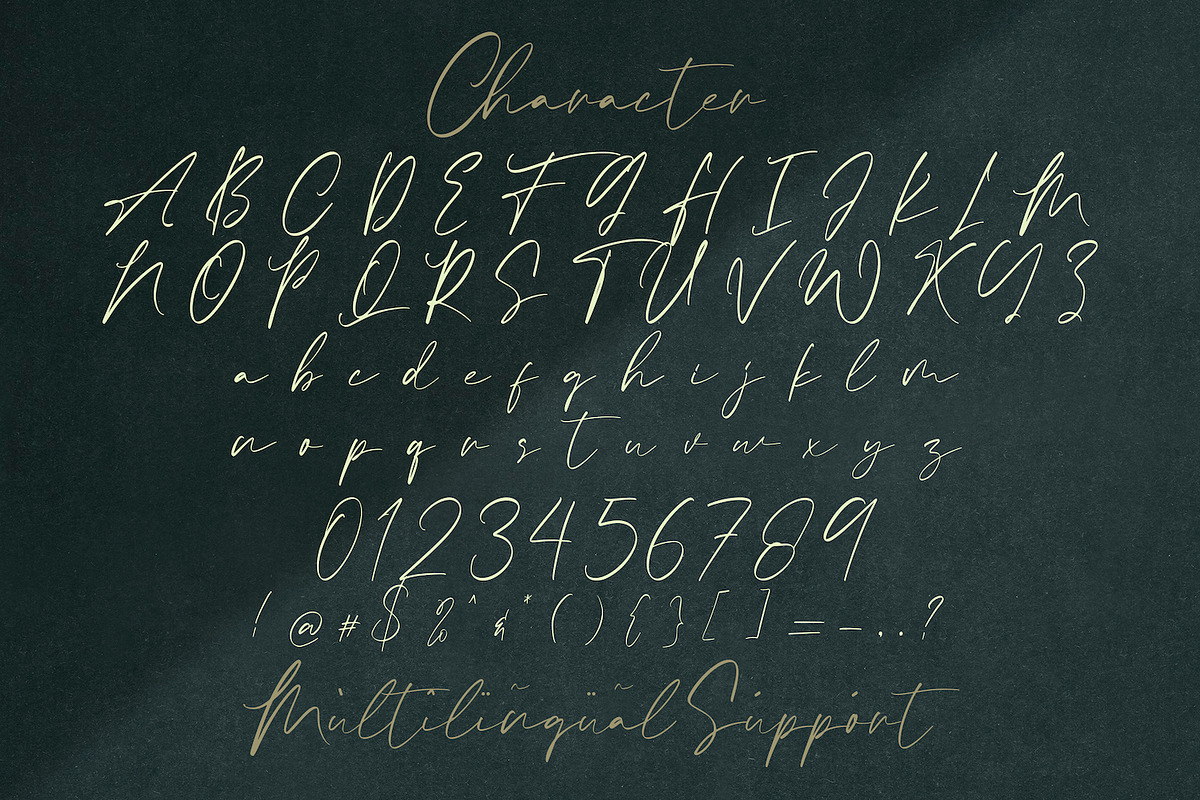 Character
A B C D E F G H I J K L M
N O P Q R S T U V W X Y Z
a b c d e f g h i j k l m
n o p q r s t u v w x y z
0 1 2 3 4 5 6 7 8 9
! @ # $ % ^ & * ( ) { } [ ] = - . . ?
Mùltîlïñgüãl Súppórt